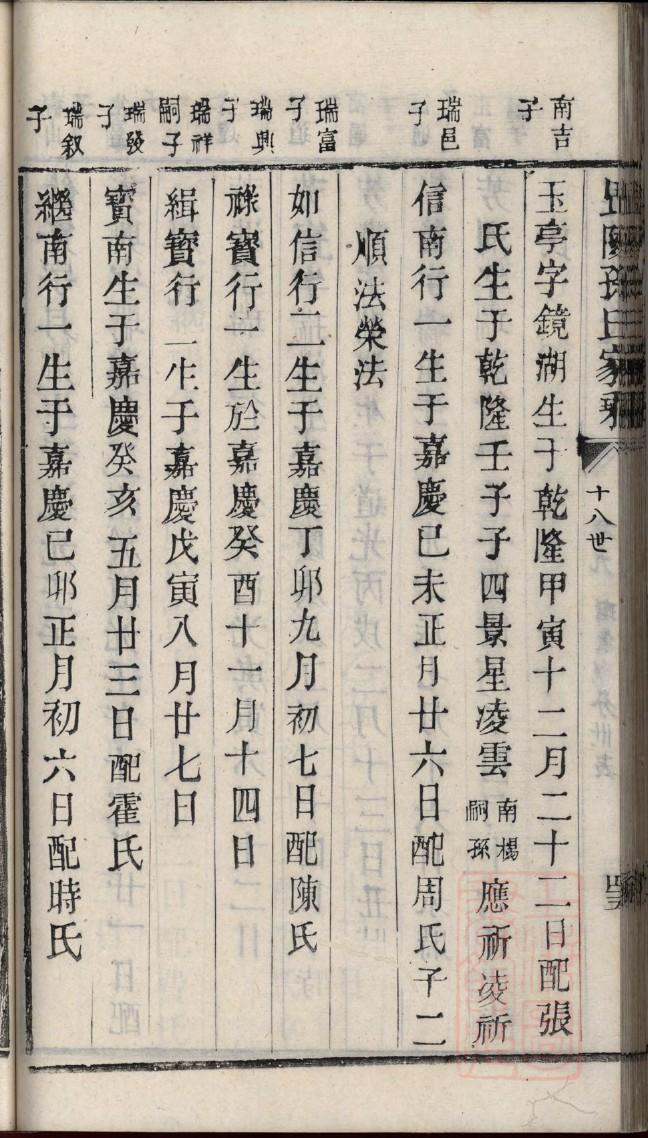 十八世
南吉子
玉亭字鏡湖生于乾隆甲寅十二月二十二日配張
氏生于乾隆壬子子四景星凌雲南楊嗣孫應祈凌祈
瑞邑子
信南行一生于嘉慶己未正月廿六日配周氏子二
順法榮法
瑞富子
如信行二生于嘉慶丁卯九月初七日配陳氏
瑞興子
祿寶行一生於嘉慶癸酉十一月十四日
瑞祥嗣子
緝寶行一生于嘉慶戊寅八月廿七日
瑞發子
寳南生于嘉慶癸亥五月廿三日配霍氏
瑞叙子
繼南行一生于嘉慶己卯正月初六日配時氏